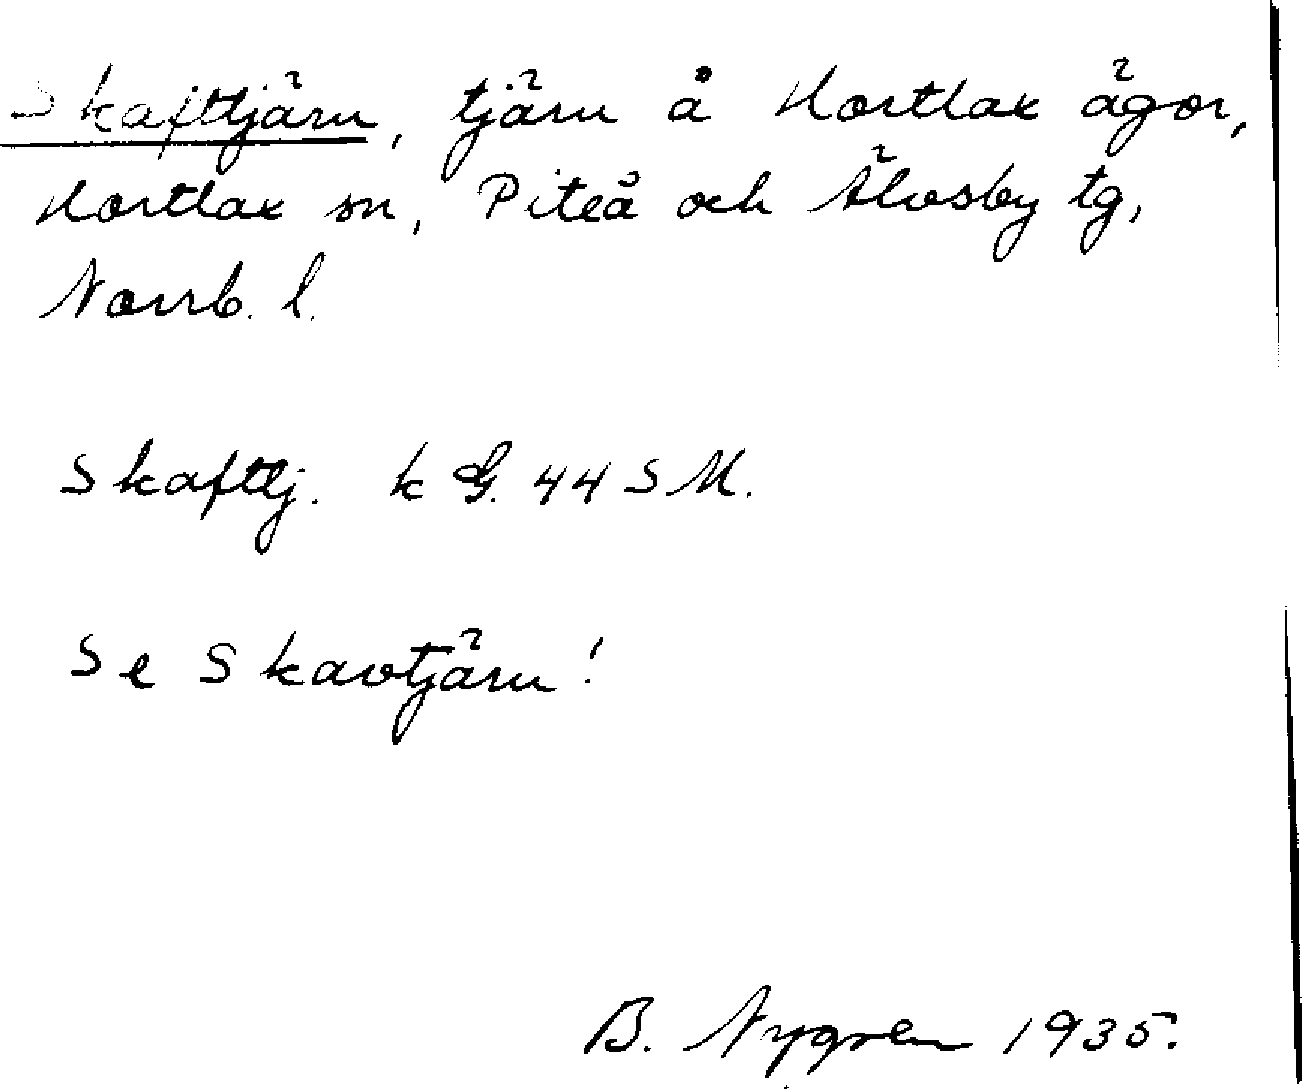 Skafttjärn, tjärn å Hortlax ägor,
Hortlax sn, Piteå och Älvsby tg,
Norrb. l.
Skafttj. k G. 44 SM.
Se Skavtjärn!
B. Nygren 1935.